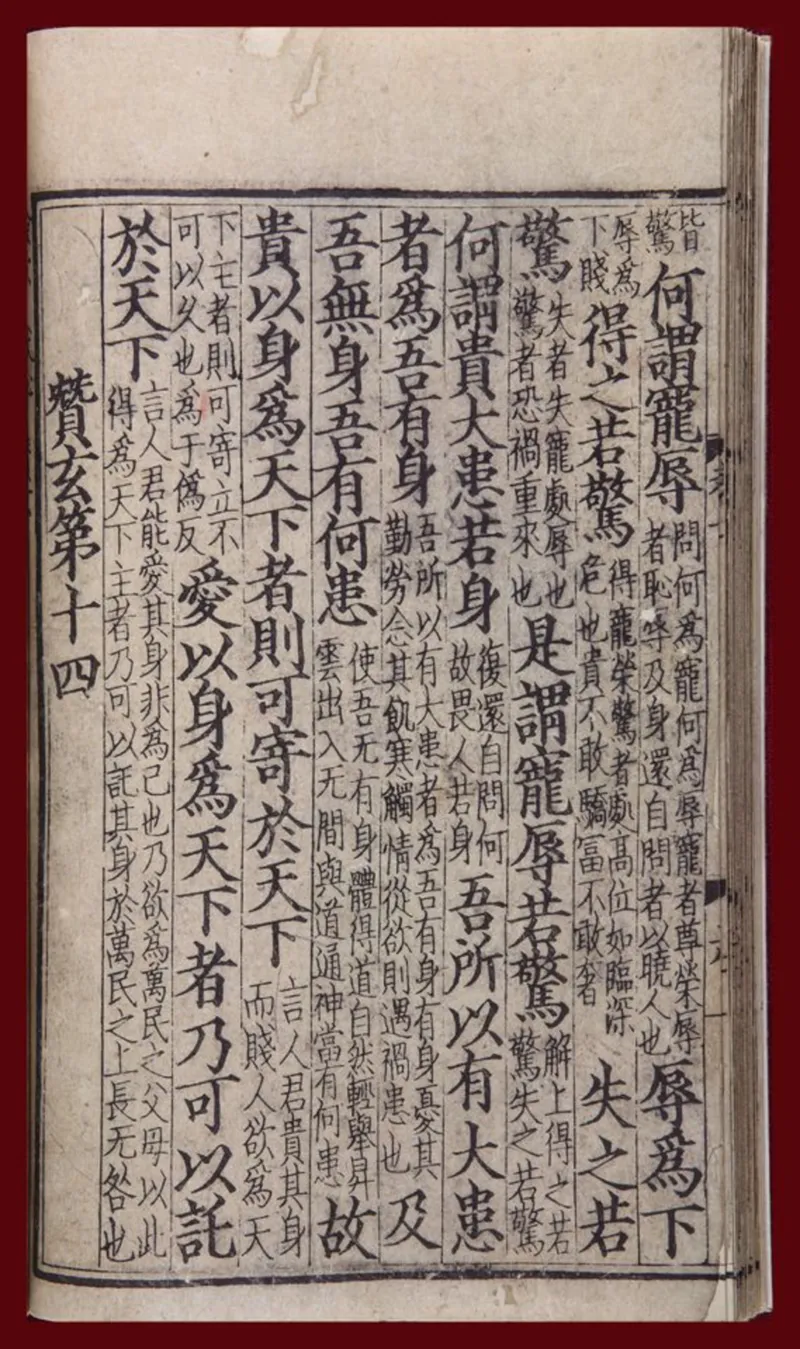 皆驚何謂寵辱問何為寵何爲辱寵者尊榮辱者恥辱及身還自問者以曉人也辱爲下
辱爲下賤得之若驚得寵榮驚者處高位如臨深危也貴不敢驕富不敢奢失之若
驚失者失寵處辱也驚者恐禍重來也是謂寵辱若驚解上得之若驚失之若驚
何謂貴大患若身復還自問何故畏人若身吾所以有大患
者爲吾有身吾所以有大患者為吾有身有身憂其勤勞念其飢寒觸情從欲則遇禍患也及
吾無身吾有何患使吾无有身體得道自然輕舉昇雲出入无間與道通神當有何患故
貴以身爲天下者則可寄於天下言人君貴其身而賤人欲為天
下主者則可寄立不可以久也為于偽反愛以身爲天下者乃可以託
於天下言人君能愛其身非為己也乃欲為萬民之父母以此得為天下主者乃可以託其身於萬民之上長无咎也
贊玄第十四